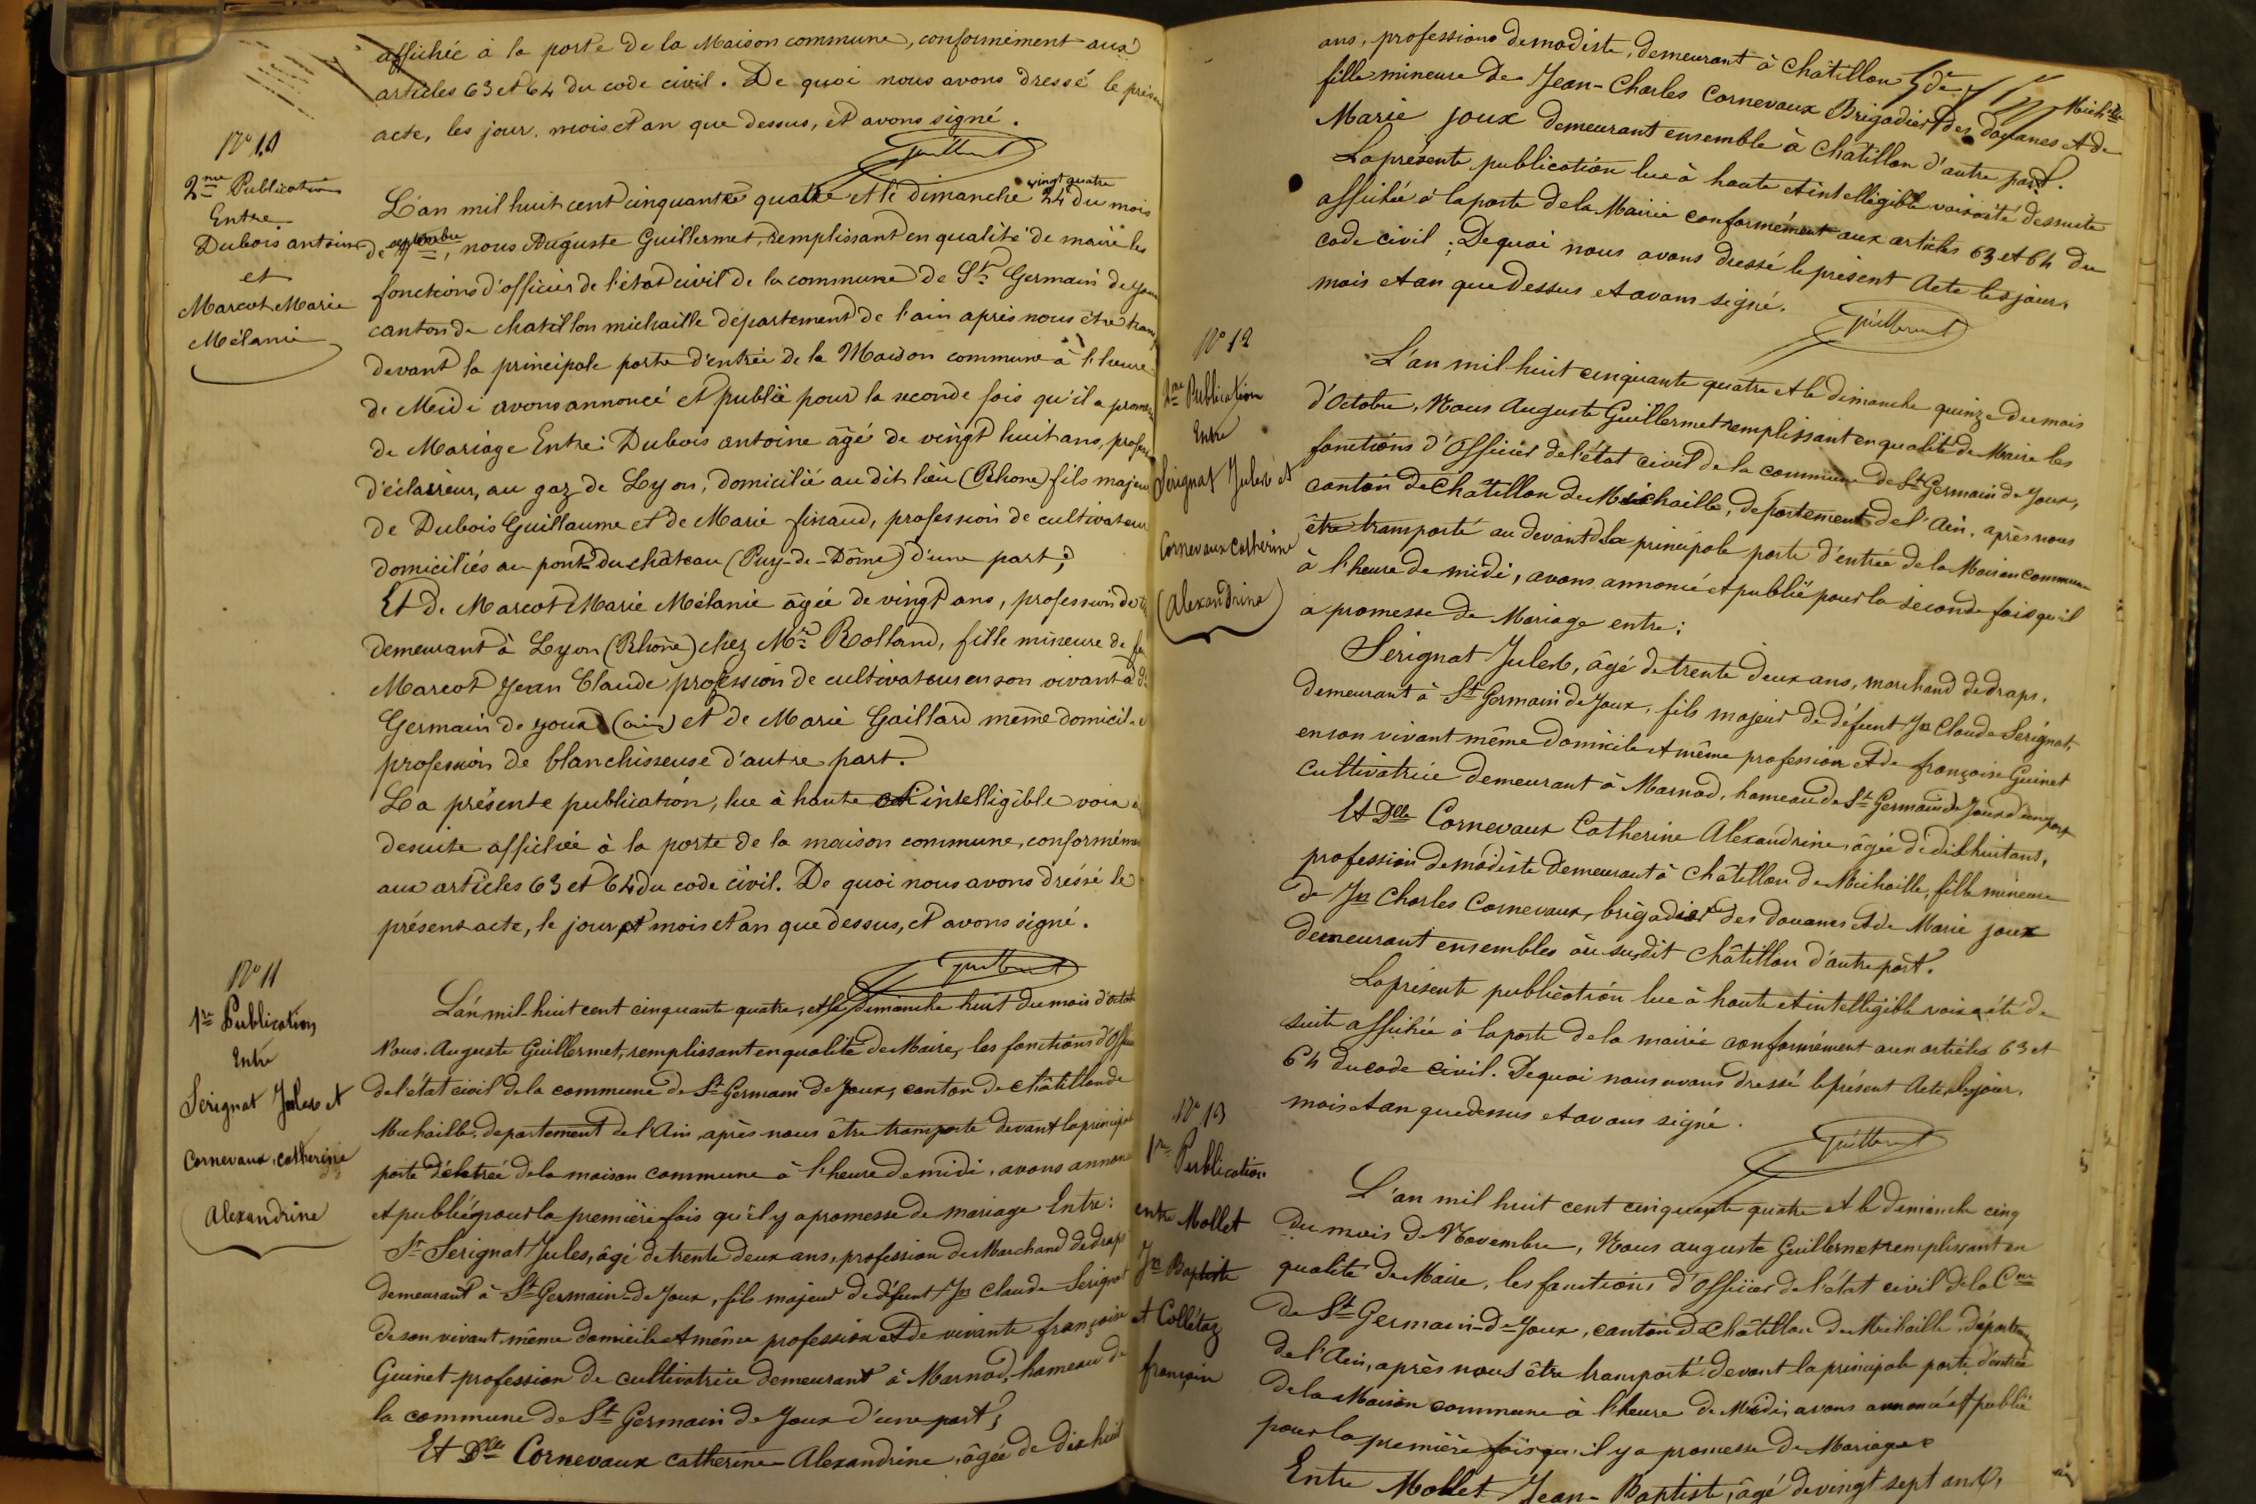 affichée à la porte de la Maison commune, conformément aux
articles 63 et 64 du code civil. De quoi nous avons dressé le
acte, les jour, mois et an que dessus, et avons signé.
N° 10
2me Publication
Entre
Dubois antoine
et
Marcot Marie
Mélanie
L'an mil huit cent cinquante quatre et le dimanche vingt quatre 24 du mois
de septembre, nous Auguste Guillermet, remplissant en qualité de maire les
fonctions d'officier de l'état civil de la commune de St Germain de
canton de chatillon michaille département de l'ain après nous être
devant la principale porte d'entrée de la Maison commune à l'heure
de Midi avons annoncé et publié pour la seconde fois qu'il a
de Mariage Entre: Dubois antoine âgé de vingt huit ans,
d'éclaireur, au gaz de Lyon, domicilié au dit lieu (Rhone) fils majeur
de Dubois Guillaume et de Marie finaud, profession de cultivateur
domiciliés au pont du château (Puy-de-Dôme) d'une part;
Et de Marcot Marie Mélanie âgée de vingt ans, profession de
demeurant à Lyon (Rhône) chez Mr Rolland, fille mineure de
Marcot Jean Claude profession de cultivateur en son vivant à
Germain de youx (ain) et de Marie Gaillard même domicile
profession de blanchisseuse d'autre part.
La présente publication, lue à haute et intelligible voix
desuite affichée à la porte de la maison commune, conformément
aux articles 63 et 64 du code civil. De quoi nous avons dréssé le
présent acte, le jour et mois et an que dessus, et avons signé.
N° 11
1re Publication
Entre
Serignat Jules et
Cornevaux catherine
Alexandrine
L'an mil-huit cent cinquante quatre, et le dimanche huit du mois d'Octobre
Nous Auguste Guillermet, remplissant en qualité de Maire, les fonctions d'
de l'état civil de la commune de St Germain de Joux, canton de châtillon de
Michaille, departement de l'Ain, après nous être transporté devant la principale
porte d'entrée de la maison commune à l'heure de midi, avons
et publié pour la première fois qu'il y a promesse de mariage Entre:
Sr Serignat Jules, âgé de trente deux ans, profession de Marchand de draps
demeurant à St Germain-de Joux, fils majeur de défunt Jn Claude Serignat
de son vivant même domicile et même profession et de vivante françoise
Guinet profession de cultivatrice demeurant à Marnod, hameau de
la commune de St Germain de Joux d'une part;
Et Dlle Cornevaux catherine Alexandrine, âgée de dix huit
ans, profession de modiste, demeurant à châtillon de Michaille
fille mineure de Jean-Charles Cornevaux Brigadier des douanes et de
Marie Joux demeurant ensemble à Chatillon d'autre part.
La présente publication lue à haute et intelligible voix a été desuite
affichée à la porte de la Mairie conformément aux articles 63 et 64 du
code civil; De quoi nous avons dressé le présent Acte les jour,
mois et an que dessus et avons signé.
N° 12
2me Publication
Entre
Sérignat Jules et
Cornevaux catherine
(Alexandrine)
L'an mil huit cinquante quatre et le dimanche quinze du mois
d'Octobre, Nous Auguste Guillermet remplissant en qualité de Maire les
fonctions d'Officier de l'état civil de la commune de St Germain de Joux,
canton de Châtillon de Michaille, departement de l'Ain, après nous
être transporté au devant de la principale porte d'entrée de la Maison commune
à l'heure de midi, avons annoncé et publié pour la seconde fois qu'il
a promesse de Mariage entre:
Sérignat Jules, âgé de trente deux ans, marchand de draps,
demeurant à St Germain de Joux, fils majeur de défunt Jn Claude Sérignat,
en son vivant même domicile et même profession et de françoise Guinet
Cultivatrice demeurant à Marnod, hameau de St Germain de Joux d'une part
Et Dlle Cornevaux Catherine Alexandrine, âgée de dix huit ans,
profession de modiste demeurant à Châtillon de Michaille, fille mineure
de Jn Charles Cornevaux, brigadier des douanes et de Marie Joux
demeurant ensembles au susdit Châtillon d'autre part.
La présente publication lue à haute et intelligible voix a été de
suite affichée à la porte de la mairie conformément aux articles 63 et
64 du code civil. De quoi nous avons dressé le présent Acte, les jour,
mois et an que dessus et avons signé.
N° 13
1re Publication
entre Mollet
Jn Baptiste
et Collétaz
françoise
L'an mil huit cent cinquante quatre et le dimanche cinq
du mois de Novembre, Nous auguste Guillermet remplissant en
qualité de Maire, les fonctions d'Officier de l'état civil de la Cne
de St Germain-de-Joux, canton de Châtillon de Michaille, département
de l'Ain, après nous être transporté devant la principale porte d'entrée
de la Maison commune à l'heure de Midi, avons annoncé et publié
pour la première fois qu'il y a promesse de Mariage
Entre Mollet Jean-Baptiste, âgé de vingt sept ans,